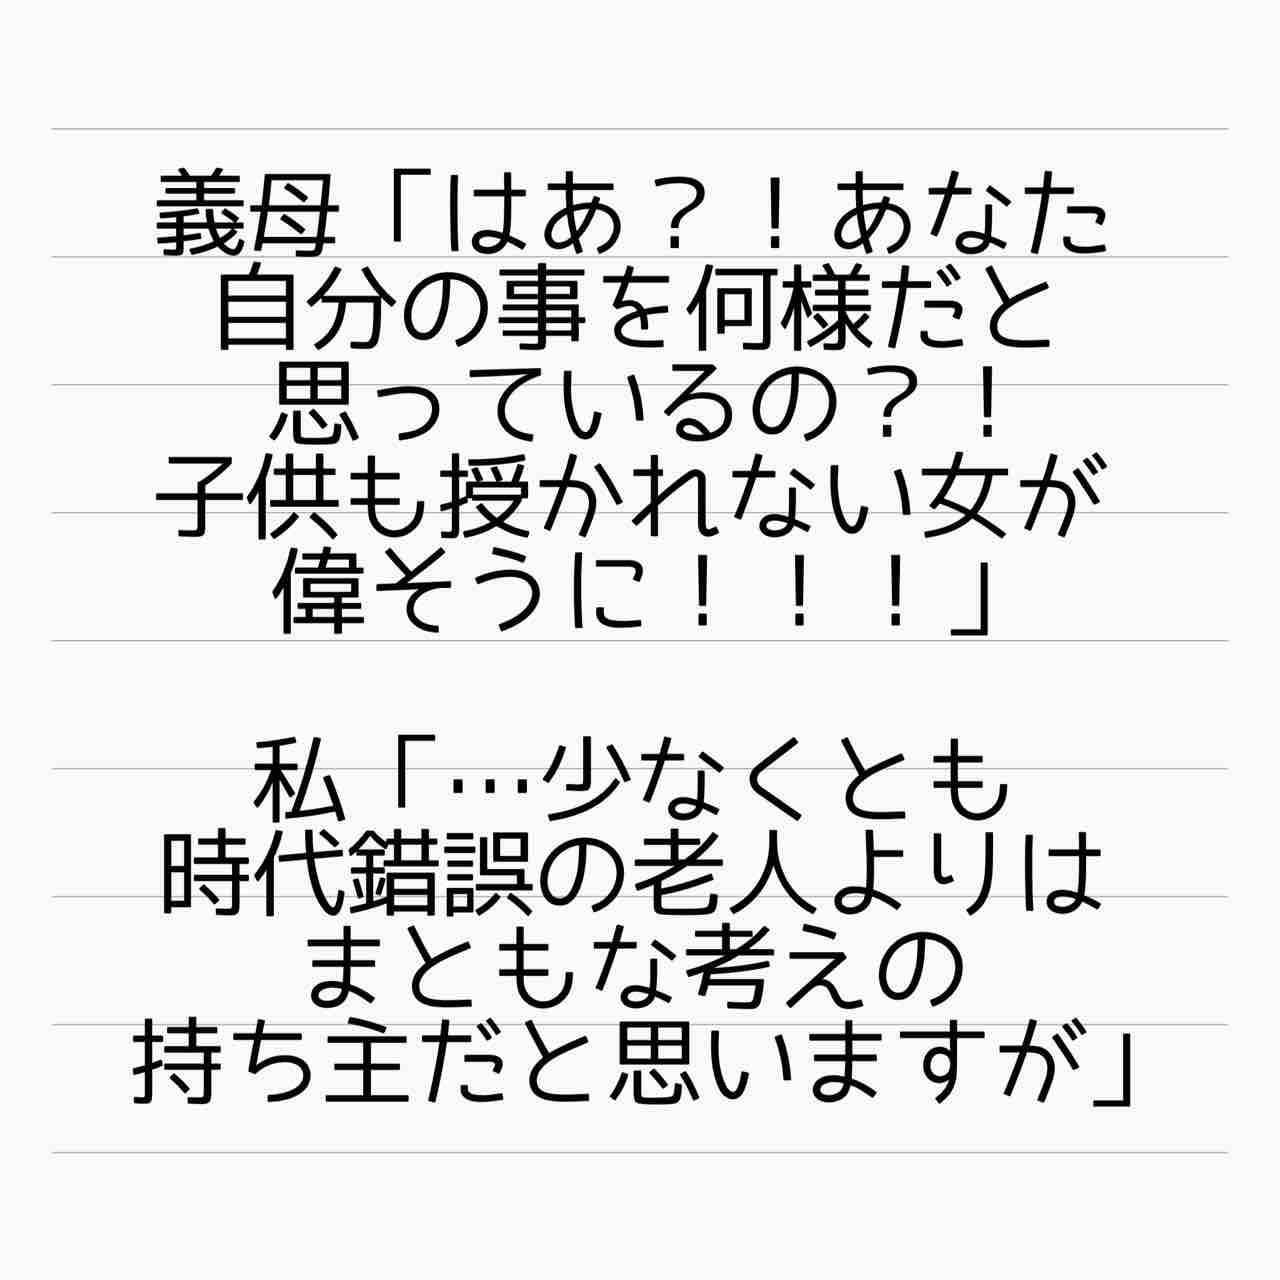 義母「はあ？！あなた
自分の事を何様だと
思っているの？！
子供も授かれない女が
偉そうに！！！」
私「…少なくとも
時代錯誤の老人よりは
まともな考えの
持ち主だと思いますが」